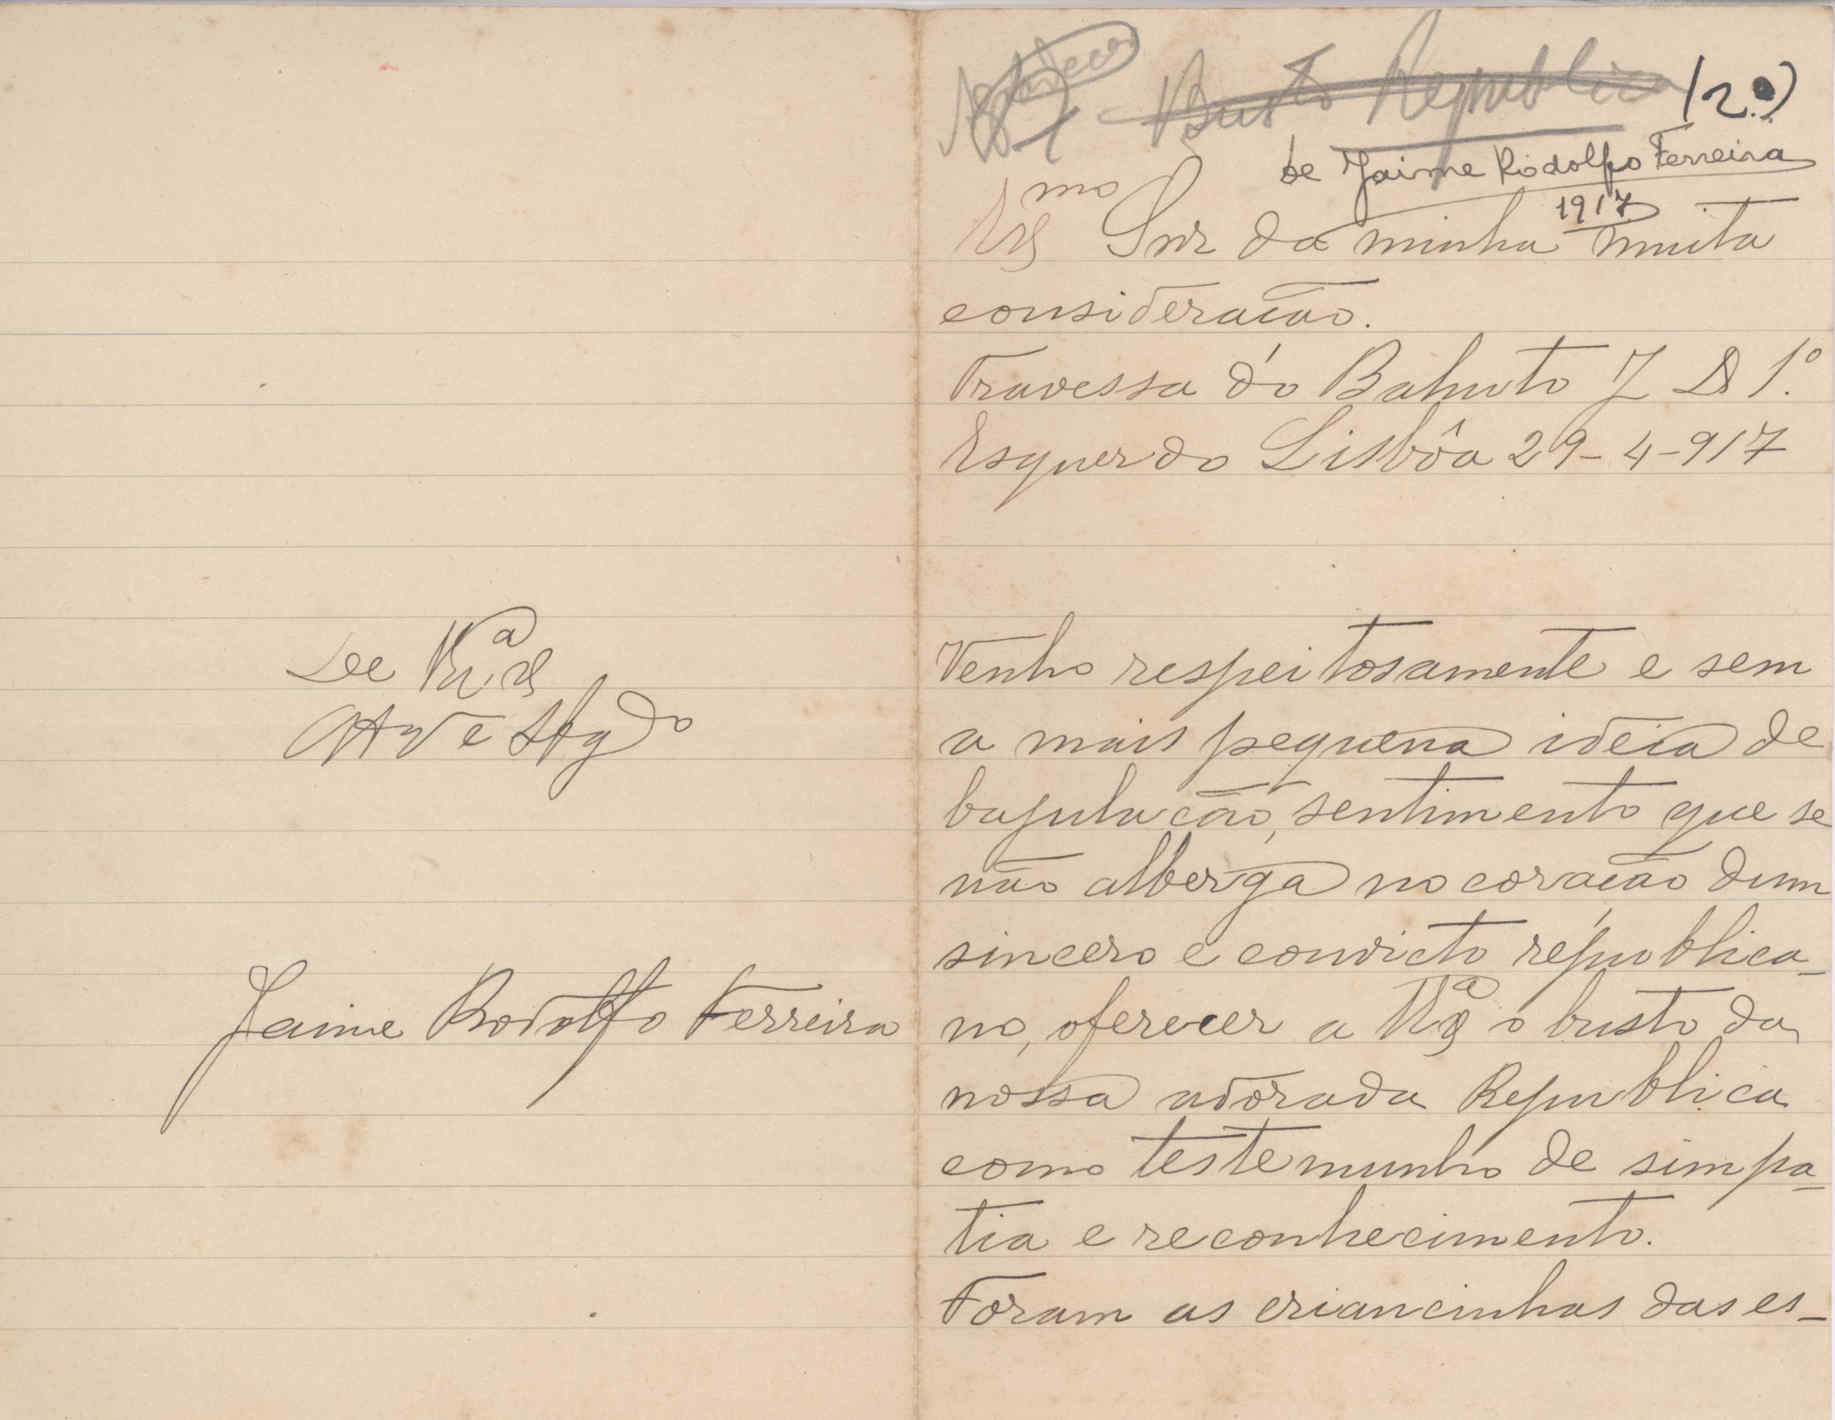 Busto Republica (2.º)
de Jaime Rodolfo Ferreira
1917
Exmo Snr da minha muita
consideração.
Travessa do Bahuto J D 1.º
Esquerdo Lisbôa 29-4-917
Venho respeitosamente e sem
a mais pequena ideia de
bajulação, sentimento que se
não alberga no coração dum
sincero e convicto républica-
no, oferecer a V. Exª o busto da
nossa adorada Republica
como testemunho de simpa-
tia e reconhecimento.
Foram as criancinhas das es-
De V. Exª
Attº Ve Obgdo
Jaime Rodolfo Ferreira